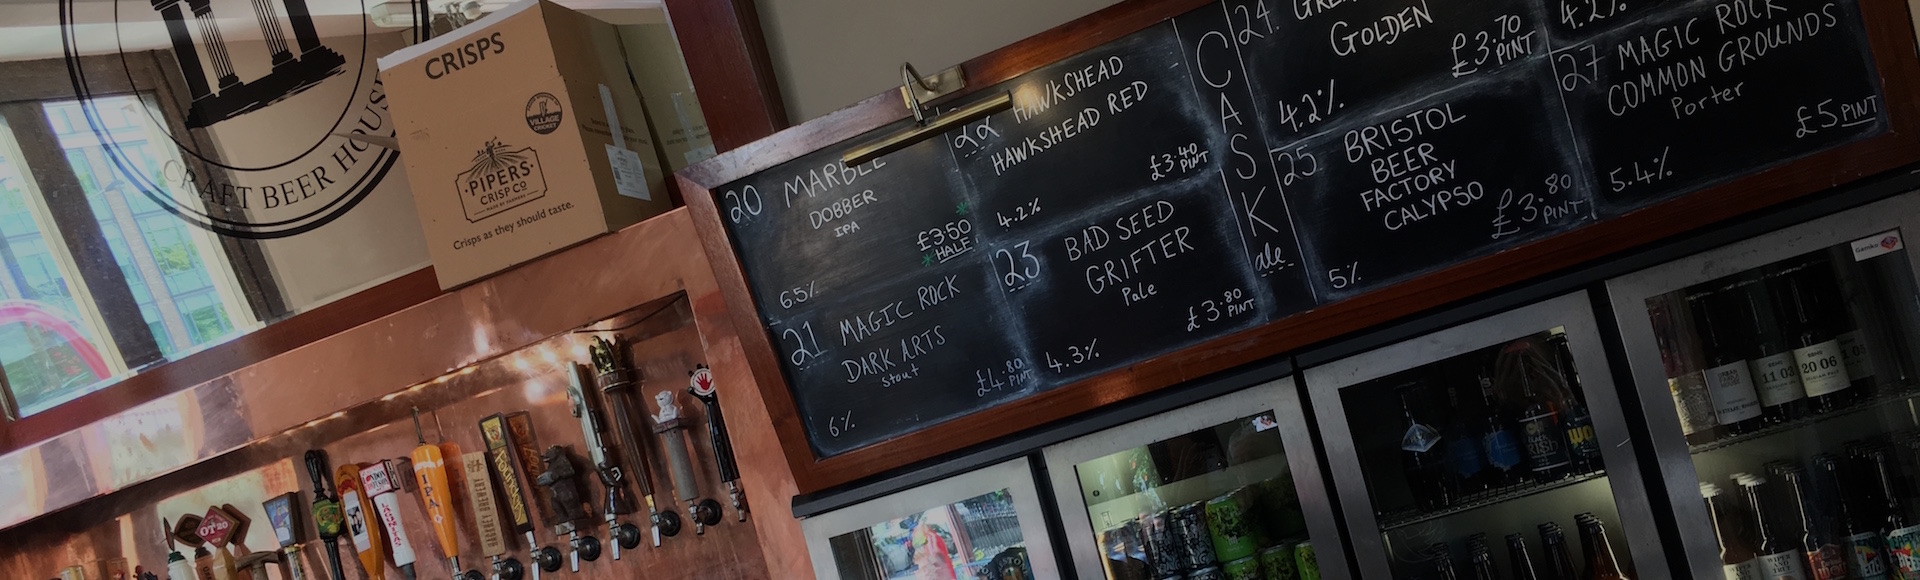 CRAFT BEER HOUSE
CRISPS
VILLAGE
CRICKET
PIPERS
CRISP CO
MADE BY FARMERS
Crisps as they should taste.
20 MARBLE
DOBBER
IPA
£3.50
HALF
6.5%
21 MAGIC ROCK
DARK ARTS
Stout
£4.80
PINT
6%
22 HAWKSHEAD
HAWKSHEAD RED
£3.40
PINT
4.2%
23 BAD SEED
GRIFTER
Pale
£3.80
PINT
4.3%
CASK
ale
24.
GOLDEN
£3.70
PINT
4.2%
25 BRISTOL
BEER
FACTORY
CALYPSO
£3.80
PINT
5%
4.2%
27 MAGIC ROCK
COMMON GROUNDS
Porter
£5 PINT
5.4%
Gamko
IPA
LAGUNITAS
OT 20
11 03
20 06